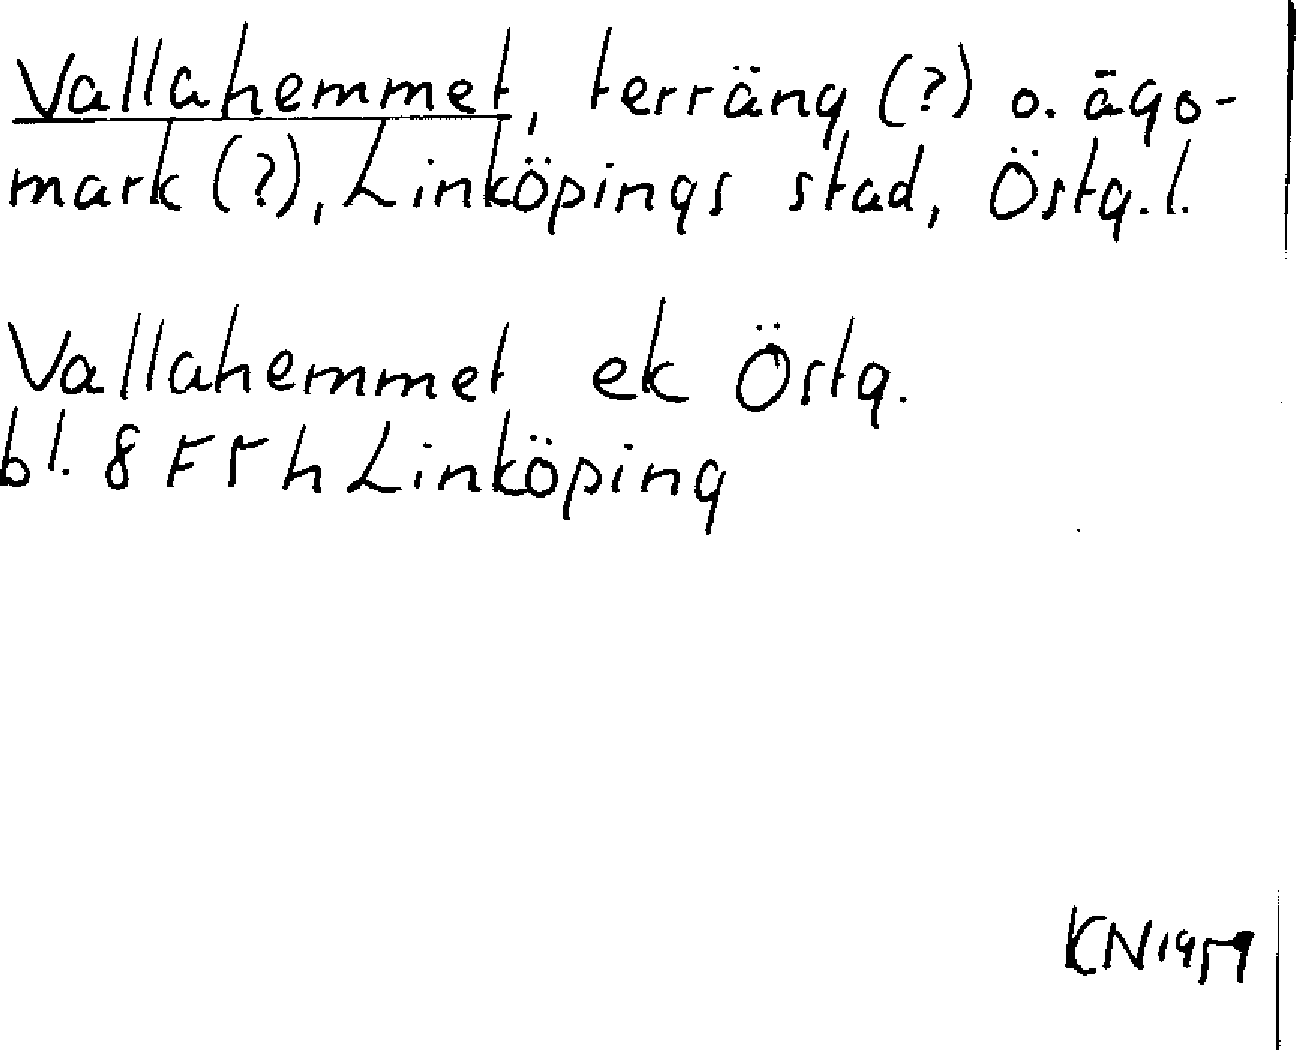 Vallahemmet, terräng (?) o. ägo-
mark (?), Linköpings stad, Östg. l.
Vallahemmet ek Östg.
bl. 8 F 5 h Linköping
KN 1959